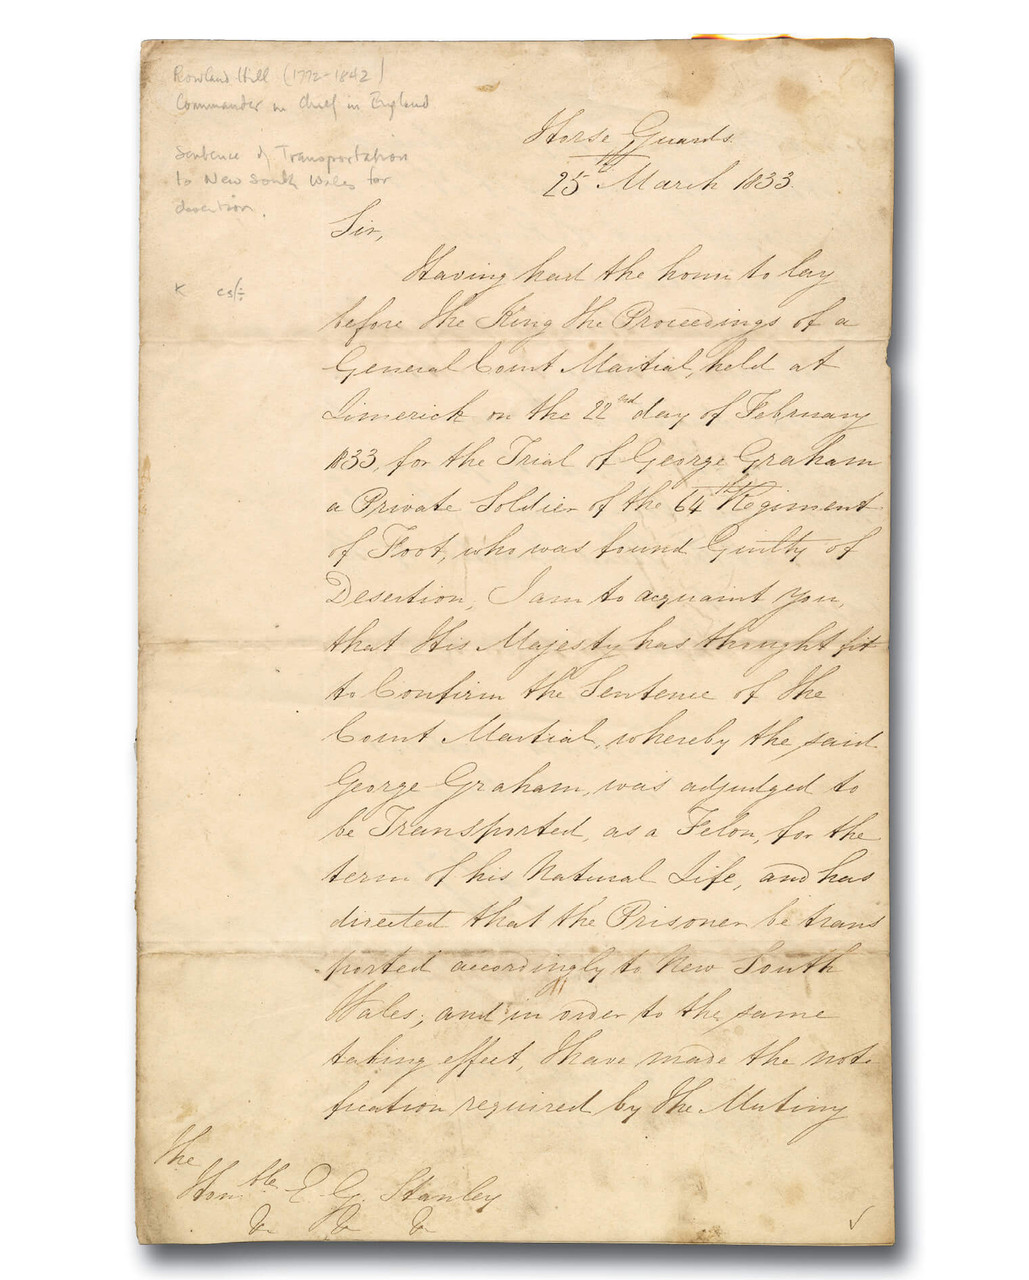 Rowland Hill (1772-1842)
Commander in Chief in England
Sentence of Transportation
to New South Wales for
desertion.
K cs/-
Horse Guards
25th March 1833.
Sir,
Having had the honor to lay
before The King The Proceedings of a
General Court Martial, held at
Limerick on the 22nd day of February
1833, for the Trial of George Graham
a Private Soldier of the 64th Regiment
of Foot, who was found Guilty of
Desertion, I am to acquaint you,
that His Majesty has thought fit
to Confirm the Sentence of The
Court Martial, whereby the said
George Graham, was adjudged to
be Transported, as a Felon, for the
term of his Natural Life, and has
directed that the Prisoner be trans
ported accordingly to New South
Wales; and in order to the same
taking effect, I have made the noti
fication required by The Mutiny
The
Honble. E. G. Stanley
&c &c &c